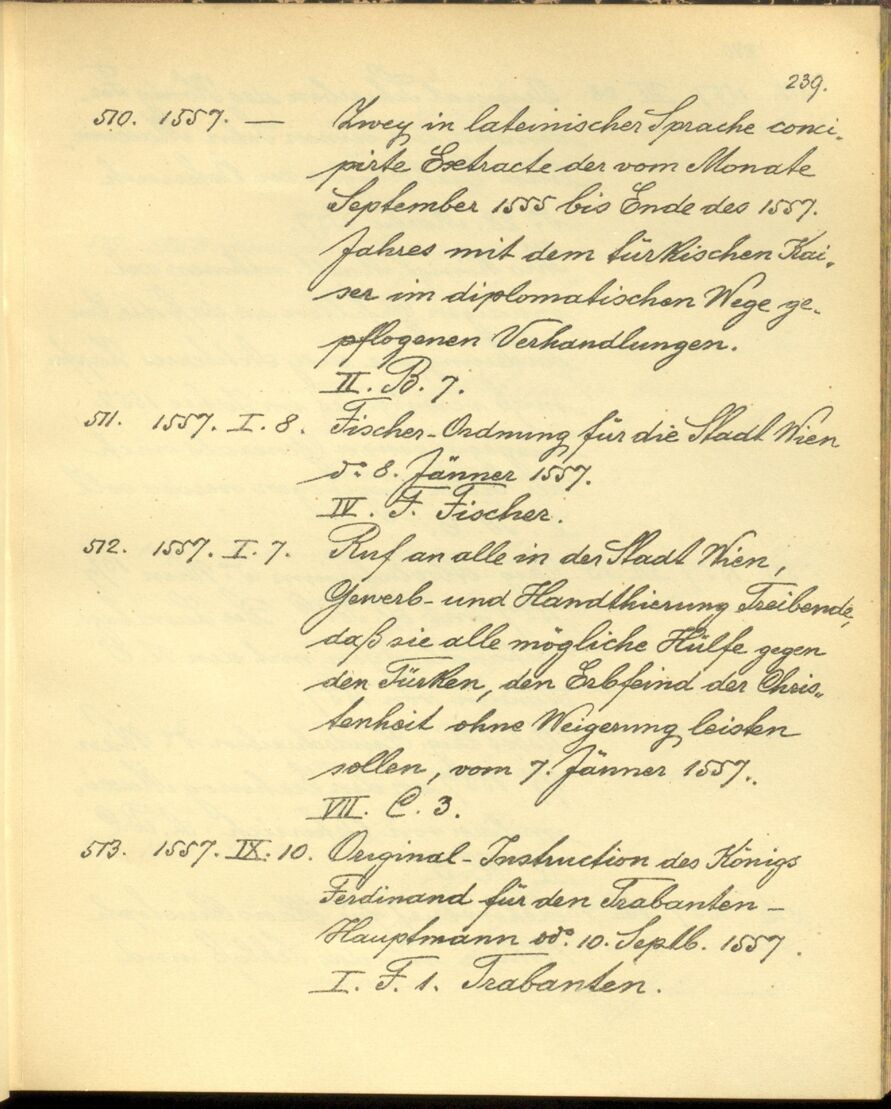 239.
510. 1557. — Zwey in lateinischer Sprache conci-
pirte Extracte der vom Monate
September 1555 bis Ende des 1557.
Jahres mit dem türkischen Kai-
ser im diplomatischen Wege ge-
pflogenen Verhandlungen.
II. B. 7.
511. 1557. I. 8. Fischer-Ordnung für die Stadt Wien
do 8. Jänner 1557.
IV. F. Fischer.
512. 1557. I. 7. Ruf an alle in der Stadt Wien,
Gewerb- und Handthierung Treibende,
daß sie alle mögliche Hülfe gegen
den Türken, den Erbfeind der Chris-
tenheit ohne Weigerung leisten
sollen, vom 7. Jänner 1557.
VII. C. 3.
513. 1557. IX. 10. Original-Instruction des Königs
Ferdinand für den Trabanten-
Hauptmann ddo. 10. Septb. 1557.
I. F. 1. Trabanten.